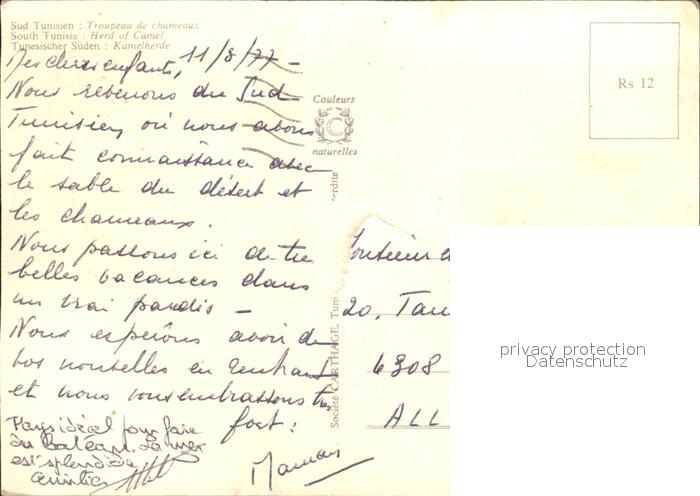 Sud Tunisien : Troupeau de chameaux
South Tunisia : Herd of Camel
Tunesischer Süden : Kamelherde
Mes chers enfants, 11/8/77 -
Nous revenons du Sud
Tunisien, où nous avons
fait connaissance avec
le sable du désert et
les chameaux.
Nous passons ici de très
belles vacances dans
un vrai paradis -
Nous espérons avoir de
vos nouvelles en rentrant
et nous vous embrassons très
fort :
Maman
Pays idéal pour faire
du bateau. La mer
est splendide
Couleurs
C
naturelles
Société CARTHAGE, Tuni
erdite
Rs 12
Monsieur e
20, Tau
6308
ALL
privacy protection
Datenschutz